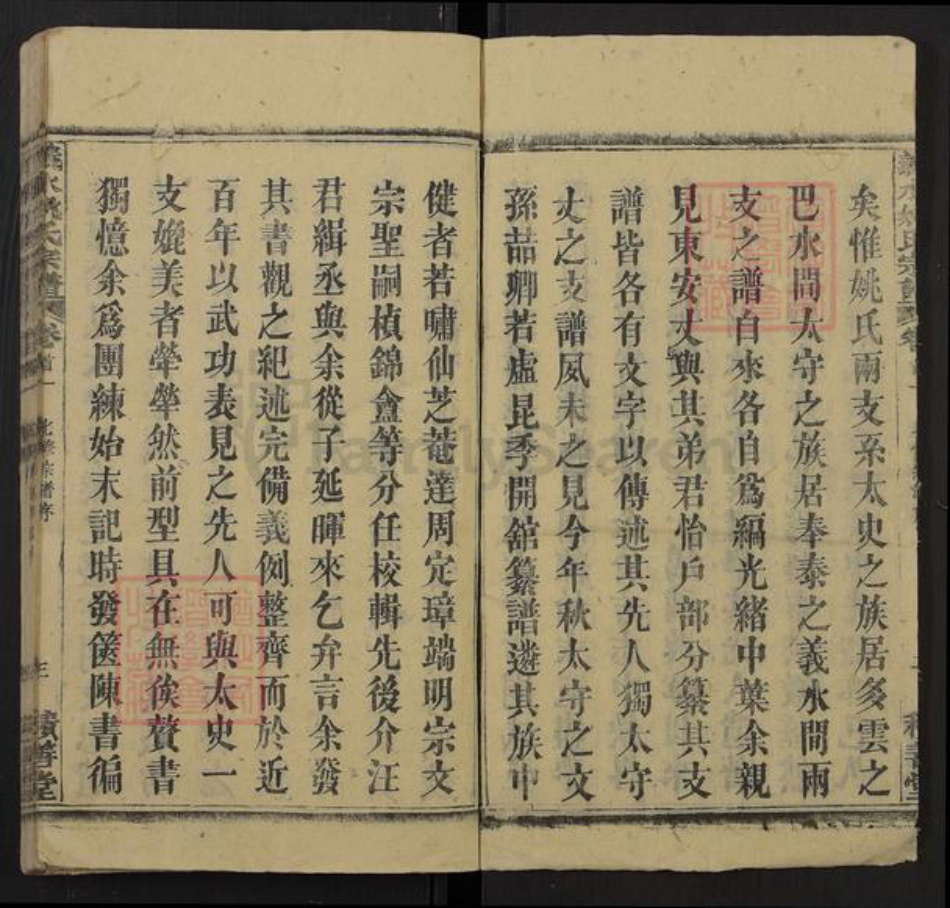 矣惟姚氏兩支系太史之族居多雲之
巴水間太守之族居奉泰之義水間兩
支之譜自來各自爲編光緒中葉余親
見東安丈與其弟君怡戶部分纂其支
譜皆各有文字以傳述其先人獨太守
丈之支譜夙未之見今年秋太守之文
孫喆卿若虛昆季開舘纂譜遴其族中
健者若嘯仙芝菴達周定璋端明宗文
宗聖嗣楨錦盦等分任校輯先後介汪
君緝丞與余從子延暉來乞弁言余發
其書觀之紀述完備義例整齊而於近
百年以武功表見之先人可與太史一
支媲美者犖犖然前型具在無俟贅書
獨憶余爲團練始末記時發篋陳書徧
義水姚氏宗譜 卷首一
積善堂